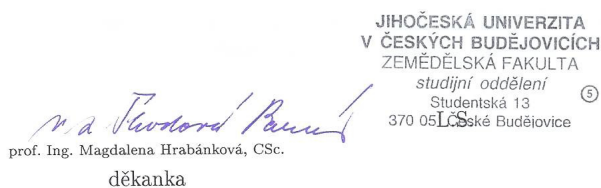 JIHOČESKÁ UNIVERZITA
V ČESKÝCH BUDĚJOVICÍCH
ZEMĚDĚLSKÁ FAKULTA
studijní oddělení
Studentská 13
370 05 České Budějovice
5
L.S.
prof. Ing. Magdalena Hrabánková, CSc.
děkanka